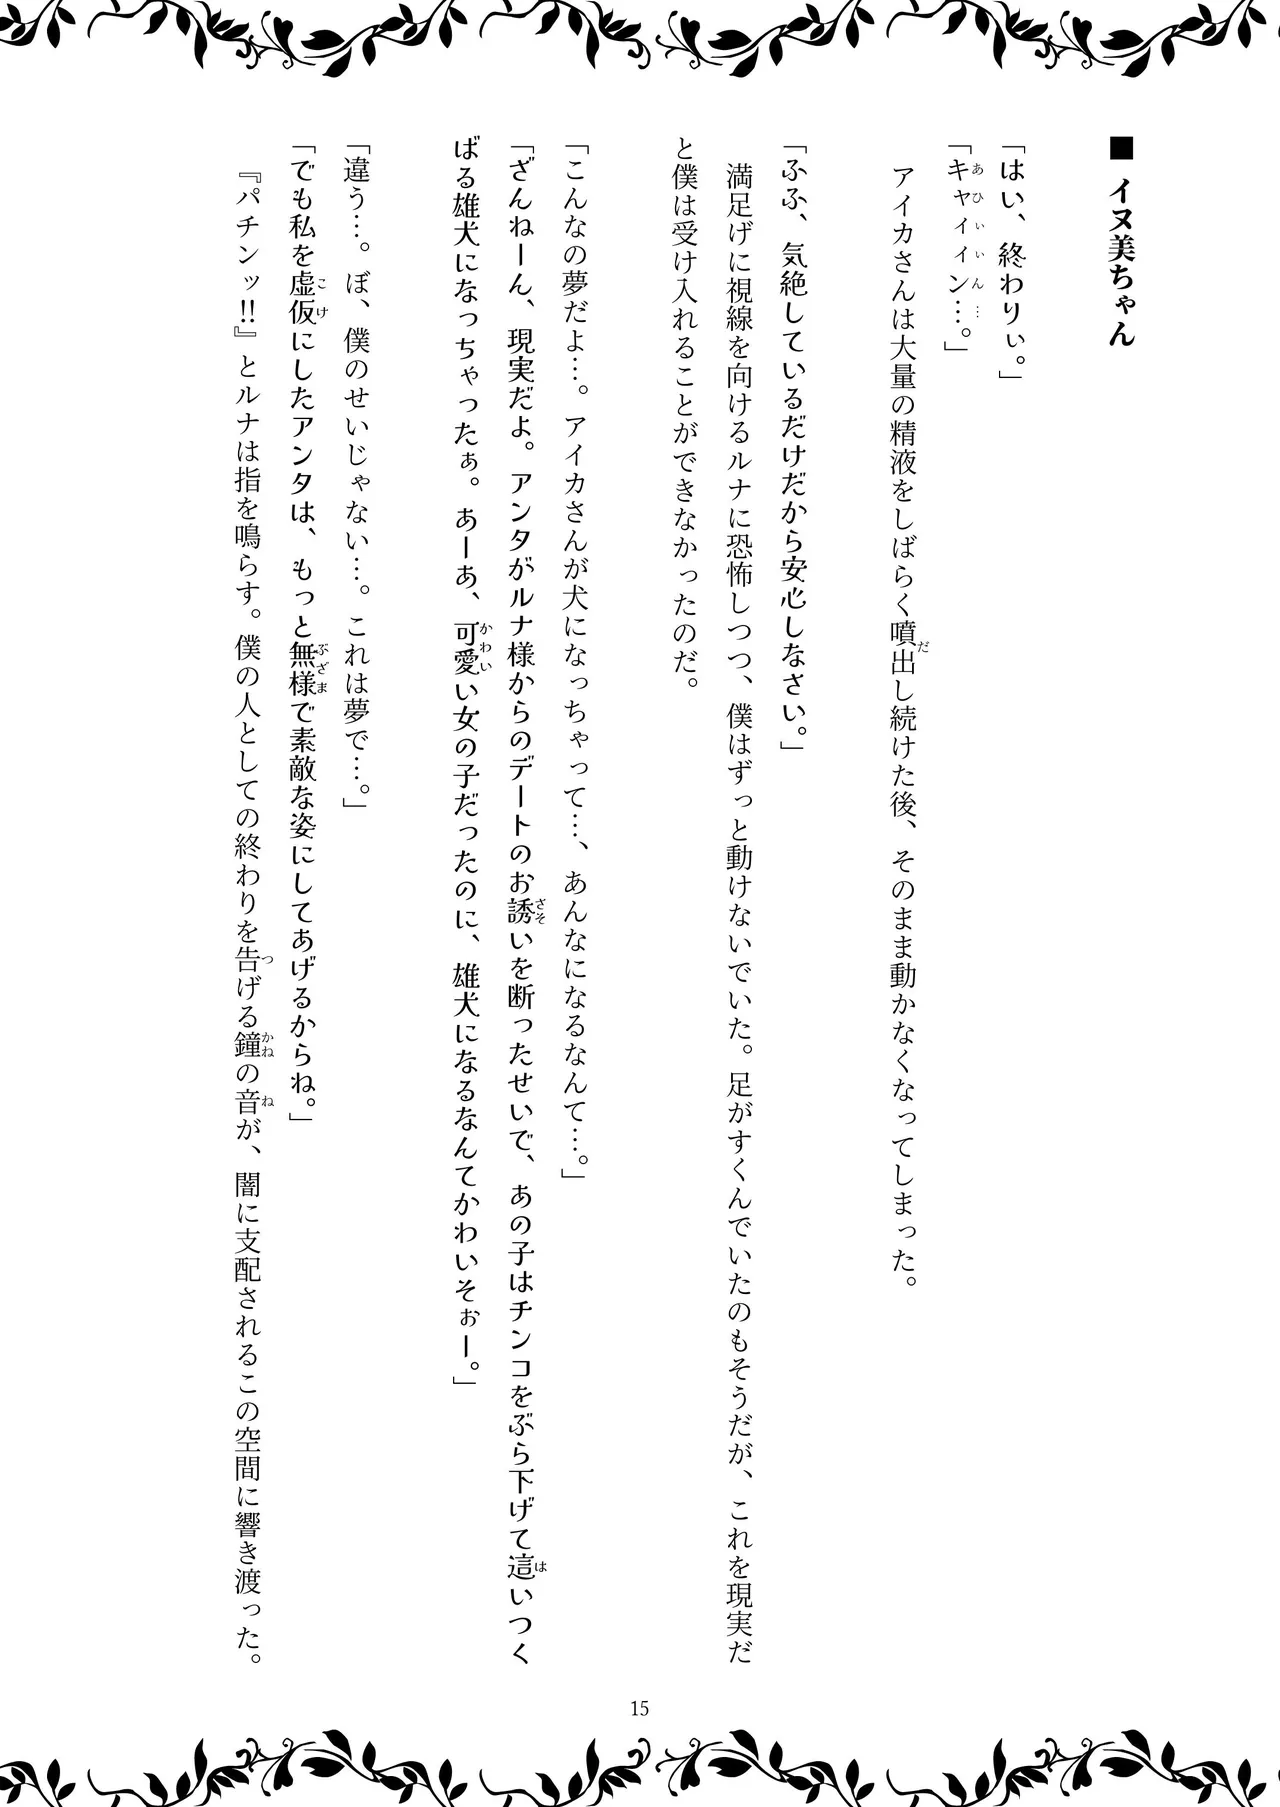 ■ イヌ美ちゃん
「はい、終わりぃ。」
「キャイィン…。」
あひぃぃん…
アイカさんは大量の精液をしばらく噴出し続けた後、そのまま動かなくなってしまった。
だ
「ふふ、気絶しているだけだから安心しなさい。」
満足げに視線を向けるルナに恐怖しつつ、僕はずっと動けないでいた。足がすくんでいたのもそうだが、これを現実だ
と僕は受け入れることができなかったのだ。
「こんなの夢だよ…。アイカさんが犬になっちゃって…、あんなになるなんて…。」
「ざんねーん、現実だよ。アンタがルナ様からのデートのお誘いを断ったせいで、あの子はチンコをぶら下げて這いつく
さそ
は
ばる雄犬になっちゃったぁ。あーあ、可愛い女の子だったのに、雄犬になるなんてかわいそぉー。」
かわい
「違う…。ぼ、僕のせいじゃない…。これは夢で…。」
「でも私を虚仮にしたアンタは、もっと無様で素敵な姿にしてあげるからね。」
こけ
ぶざま
『パチンッ!!』とルナは指を鳴らす。僕の人としての終わりを告げる鐘の音が、闇に支配されるこの空間に響き渡った。
つ
かね
ね
15